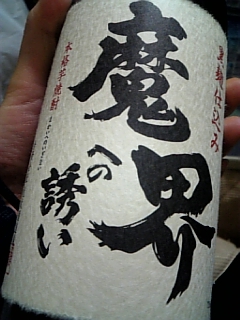 黒麹仕込み
魔界
への
誘い
本格芋焼酎